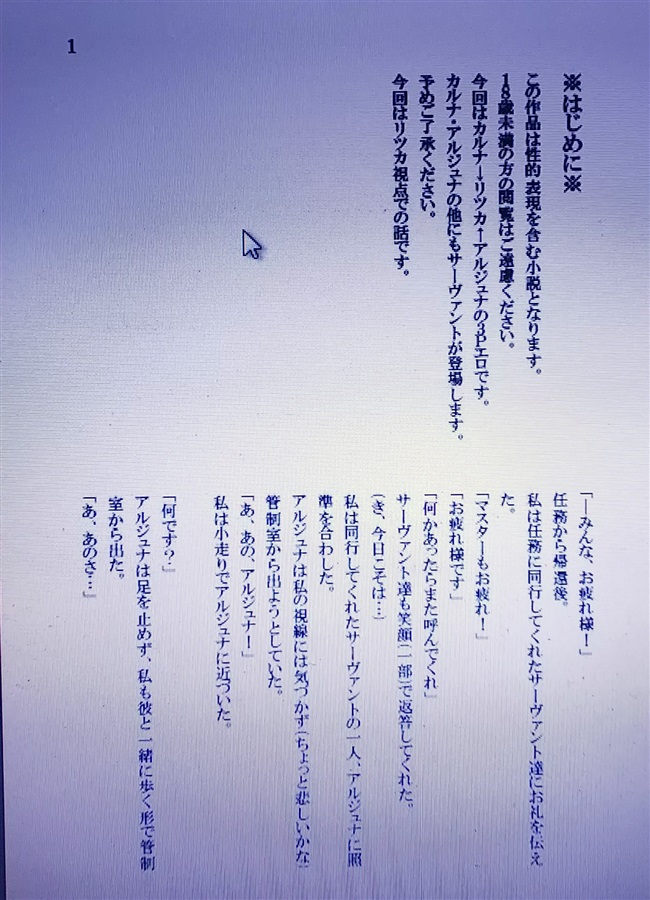 1
※はじめに※
この作品は性的表現を含む小説となります。
18歳未満の方の閲覧はご遠慮ください。
今回はカルナ→リツカ←アルジュナの3Pエロです。
カルナ・アルジュナの他にもサーヴァントが登場します。
予めご了承ください。
今回はリツカ視点での話です。
「―みんな、お疲れ様！」
任務から帰還後。
私は任務に同行してくれたサーヴァント達にお礼を伝え
た。
「マスターもお疲れ！」
「お疲れ様です」
「何かあったらまた呼んでくれ」
サーヴァント達も笑顔(一部)で返答してくれた。
(き、今日こそは…)
私は同行してくれたサーヴァントの一人、アルジュナに照
準を合わした。
アルジュナは私の視線には気づかず(ちょっと悲しいかな)
管制室から出ようとしていた。
「あ、あの、アルジュナ！」
私は小走りでアルジュナに近づいた。
「何です？」
アルジュナは足を止めず、私も彼と一緒に歩く形で管制
室から出た。
「あ、あのさ…」